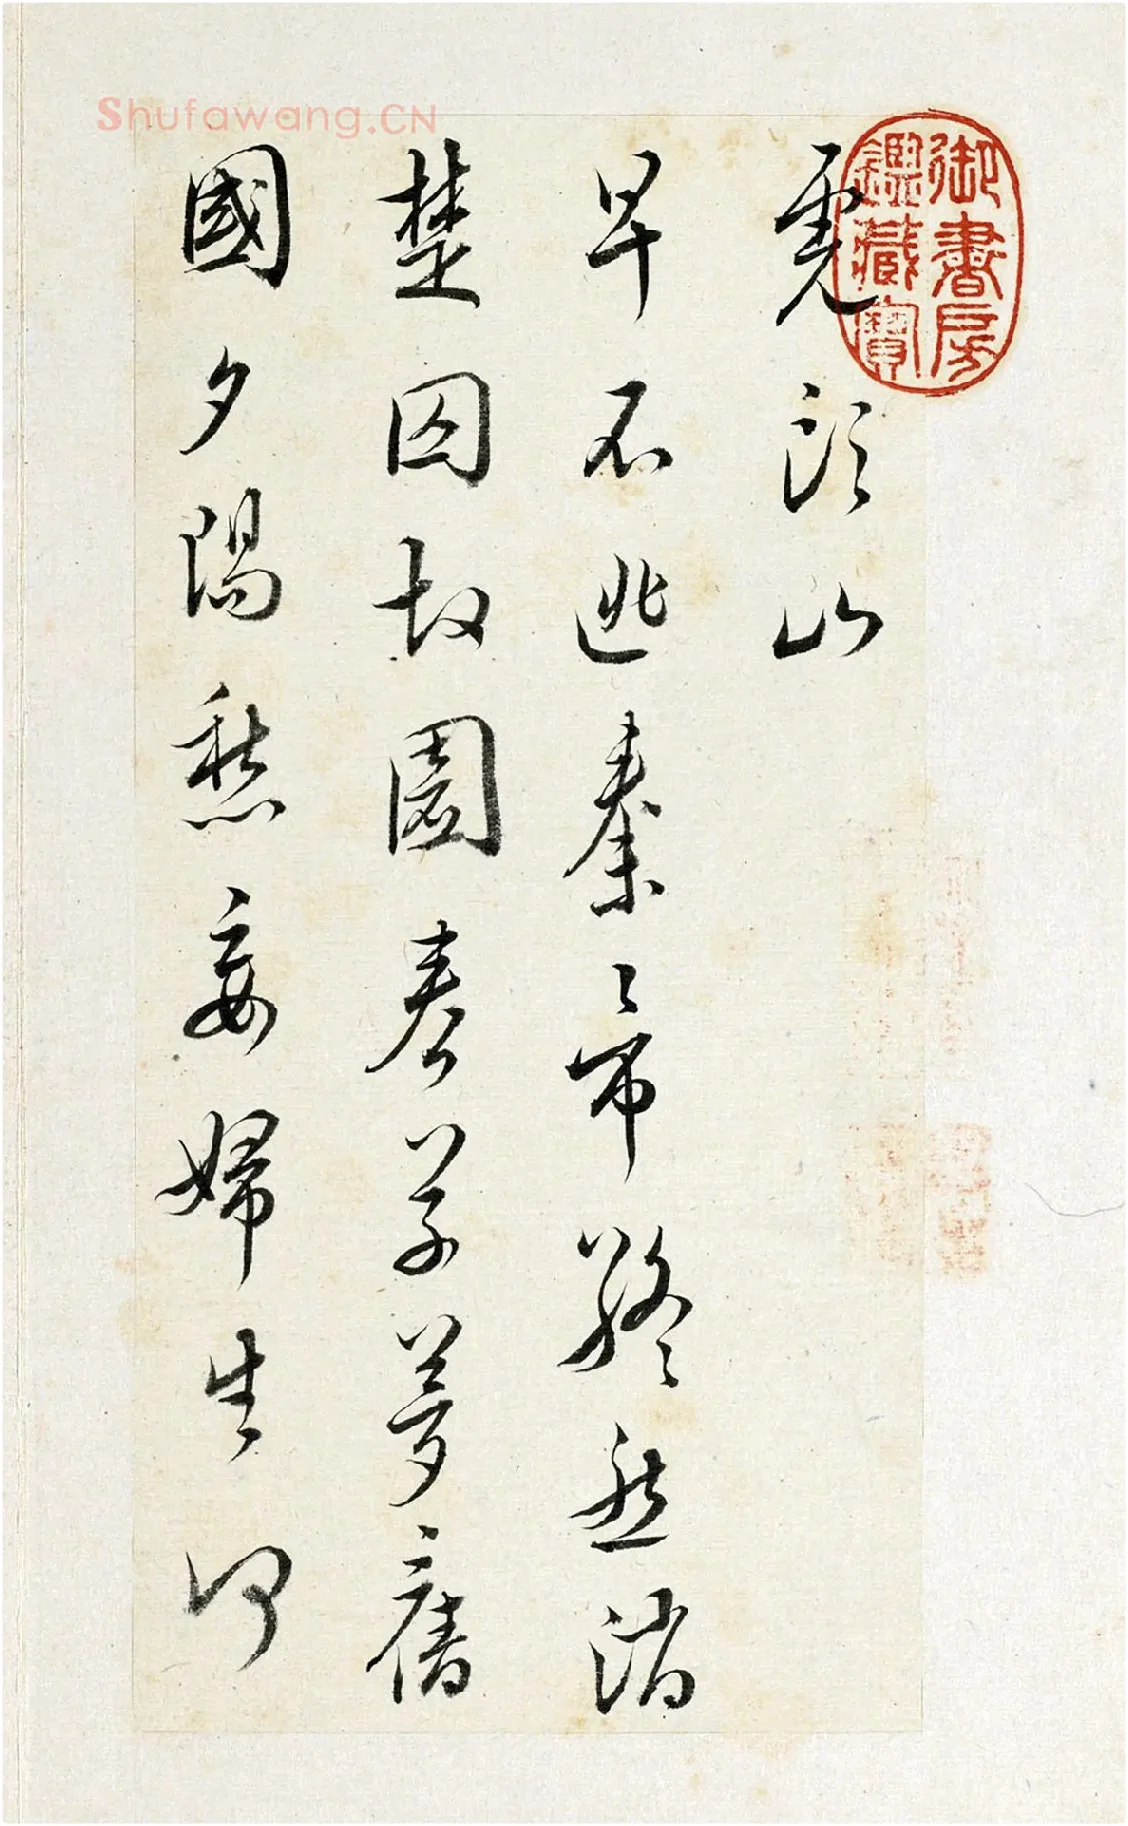 Shufawang.CN
御書房
鑑藏寶
虎頭山
早不逃秦帝終然
楚囚故園春草夢舊
國夕陽愁妾婦生何